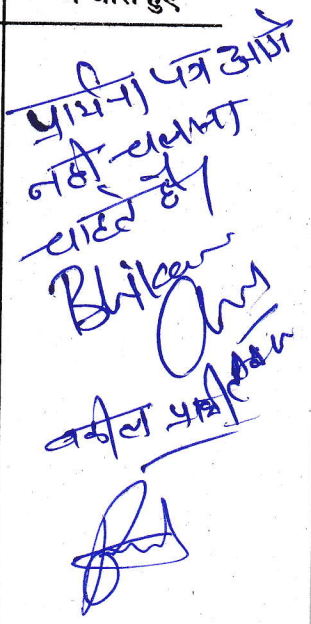 हुए
प्रार्थना पत्र आगे
नही चलाना
चाहते है।
Bhikam
वकील प्रार्थी